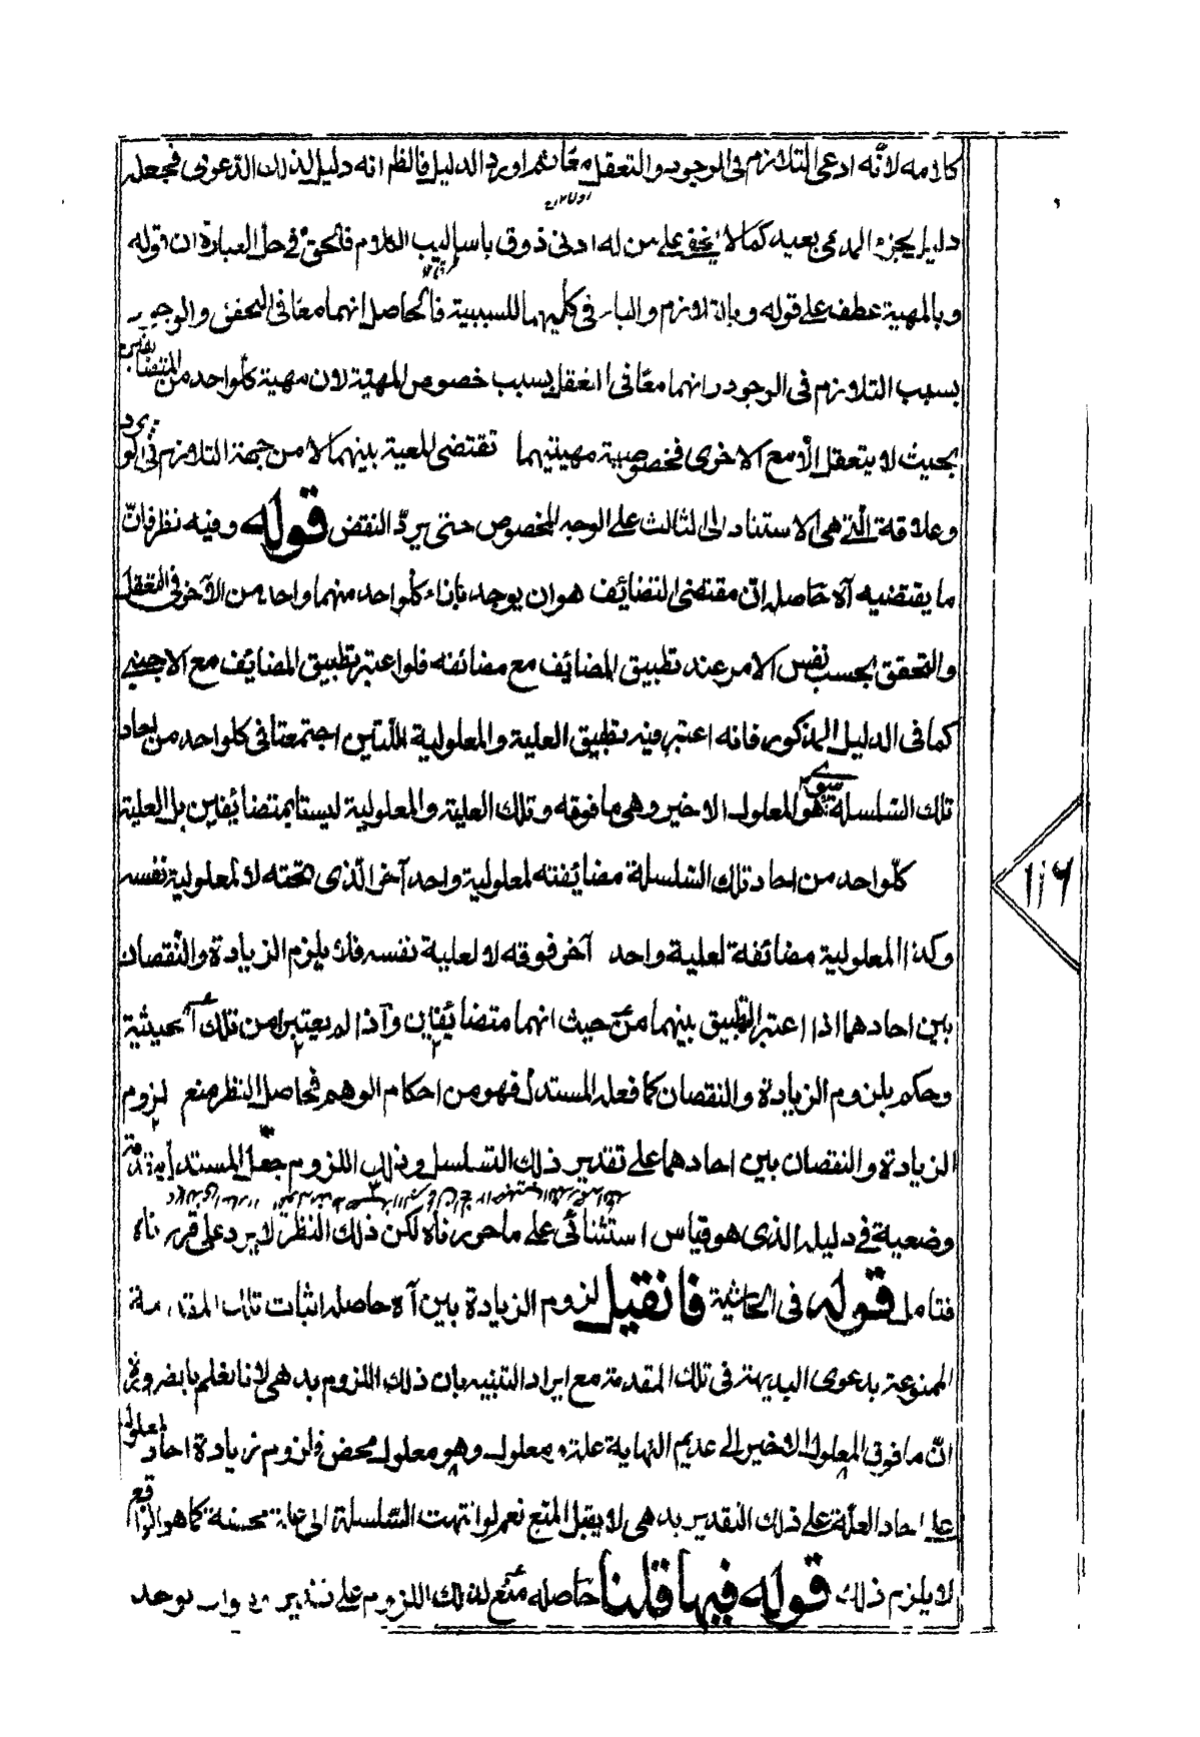 كلامه لانّه ادعى التلازم فى الوجود والتعقل معًا ثم اورد الدليل فالظ انه دليل لذلك الدعوى فجعله
دليل لجزء المدعى بعيد كما لا يخفى على من له ادنى ذوق باساليب الكلام فالحق فى حل العبارة ان قوله
وبالمهية عطف على قوله وبالتلازم والباء فى كليهما للسببية فالحاصل انهما معًا فى التحقق والوجود
بسبب التلازم فى الوجود وانهما معًا فى التعقل بسبب خصوص المهية لان مهية كلواحد من المتضايفين
بحيث لا يتعقل الّا مع الاخرى فخصوصية مهيتيهما تقتضى المعية بينهما لا من جهة التلازم فى الوجود
وعلاقة الّتى هى الاستناد الى الثالث على الوجه المخصوص حتى يردّ النقض قوله وفيه نظر فانّ
ما يقتضيه آه حاصله انّ مقتضى التضائف هو ان يوجد بازاء كلواحد منهما واحد من الآخر فى التعقل
والتحقق بحسب نفس الامر عند تطبيق المضايف مع مضائفه فلو اعتبر تطبيق المضايف مع الاجنبى
كما فى الدليل المذكور فانه اعتبر فيه تطبيق العلية والمعلولية اللتاين اجتمعتا فى كلواحد من احاد
تلك السّلسلة سوى هو المعلول الاخير وهى ما فوقه وتلك العلية والمعلولية ليستا بمتضائفين بل العلية
كلّواحد من احاد تلك السّلسلة مضائفته لمعلولية واحد آخر الّذى تحته لا لمعلولية نفسه
وكذا المعلولية مضائفة لعلية واحد آخر فوقه لا لعلية نفسه فلا يلزم الزيادة والنّقصان
بين احادهما اذا اعتبر التطبيق بينهما من حيث انهما متضائفان واذا لم يعتبرا من تلك الحيثية
وحكم بلزوم الزيادة والنقصان كما فعله المستدل فهو من احكام الوهم فحاصل النظر منع لزوم
الزيادة والنقصان بين احادهما على تقدير ذلك التسلسل وذلك اللزوم جعل المستدل مقدمة
وضعية فى دليله الذى هو قياس استثنائى على ما حررناه لكن ذلك النظر لا يرد على قررناه
فتامل قوله فى الحاشية فان قيل لزوم الزيادة بين آه حاصله اثبات تلك المقدمة
الممنوعة بدعوى البديهة فى تلك المقدمة مع ايراد التنبيه بان ذلك اللزوم بدهى لانا نعلم بالضرورة
انّ ما فوق المعلول الاخير الى عديم النهاية علة ومعلول وهو معلول محض فلزوم زيادة احاد المعلول
على احاد العلّة على ذلك التقدير بدهى لا يقبل المنع نعم لو انتهت السّلسلة الى علة محضة كما هو الواقع
لا يلزم ذلك قوله فيها قلنا حاصله منع لذلك اللزوم على تقدير يوجد
١١٦